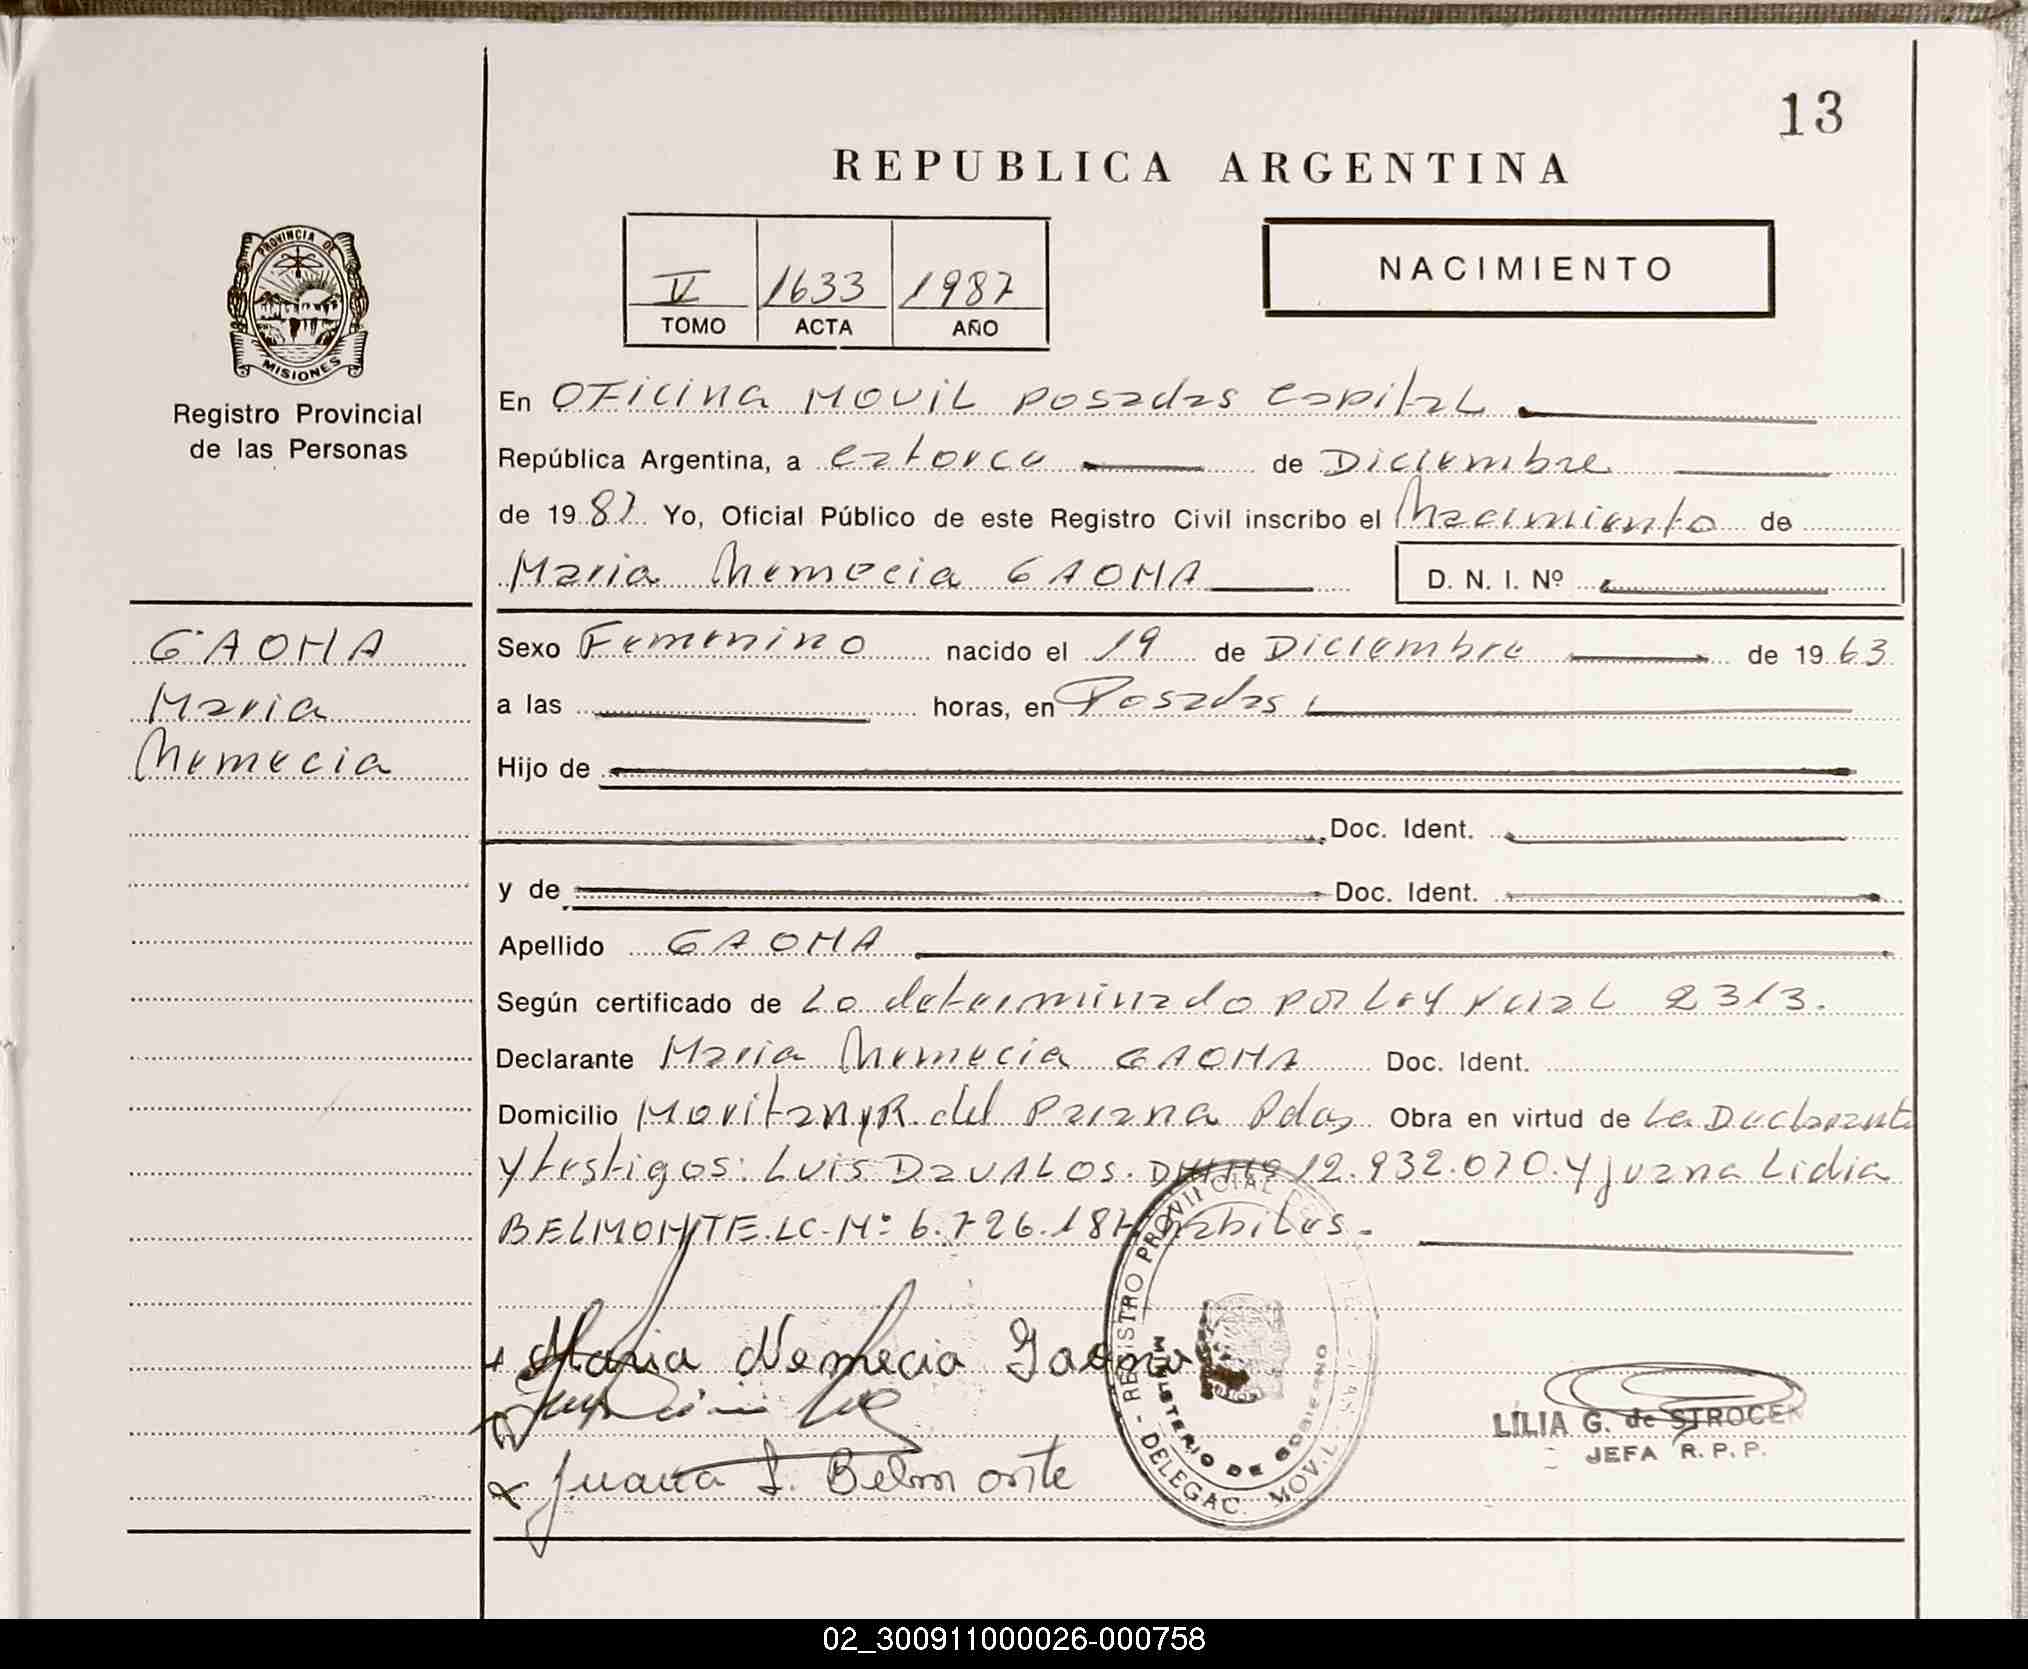 13
REPUBLICA ARGENTINA
V 1633 1987
TOMO ACTA AÑO
NACIMIENTO
PROVINCIA DE
MISIONES
Registro Provincial
de las Personas
En OFicina Movil Posadas Capital
República Argentina, a catorce de Diciembre
de 1987 Yo, Oficial Público de este Registro Civil inscribo el Nacimiento de
Maria Nemecia GAONA D. N. I. Nº
GAONA
Maria
Nemecia
Sexo Femenino nacido el 19 de Diciembre de 1963
a las horas, en Posadas
Hijo de
Doc. Ident.
y de Doc. Ident.
Apellido GAONA
Según certificado de Lo determinado por Ley 2313.
Declarante Maria Nemecia GAONA Doc. Ident.
Domicilio Moritan y R. del Parana Pdas Obra en virtud de La Declarante
y testigos: Luis DavALOS. DNI Nº 12.932.070. y Juana Lidia
BELMONTE. LC. Nº 6.726.187 habiles.
Maria Nemecia Gaona
Juana L. Belmonte
REGISTRO PROVINCIAL DE LAS
MINISTERIO DE GOBIERNO
DELEGAC. MOVIL
LILIA G. de STROCEN
JEFA R. P. P.
02_300911000026-000758